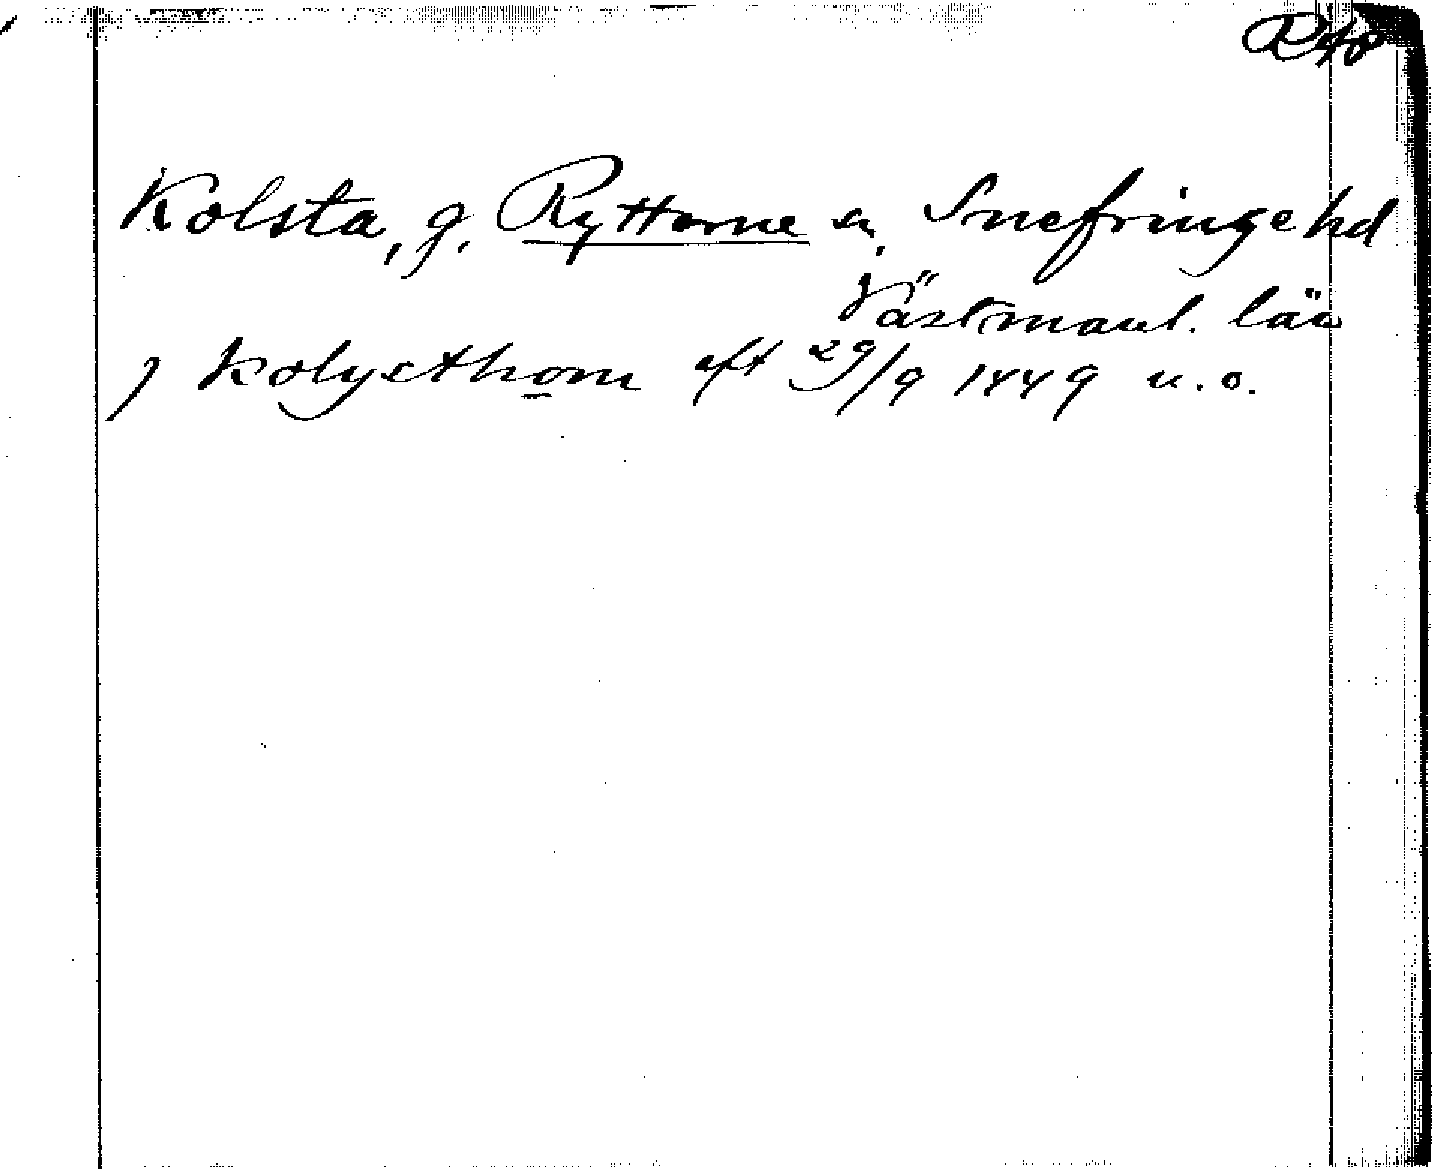 Kolsta, g. Ryttorne sn, Snefringe hd
Västmanl. län
j Kolysthom eft 29/9 1449 u.o.